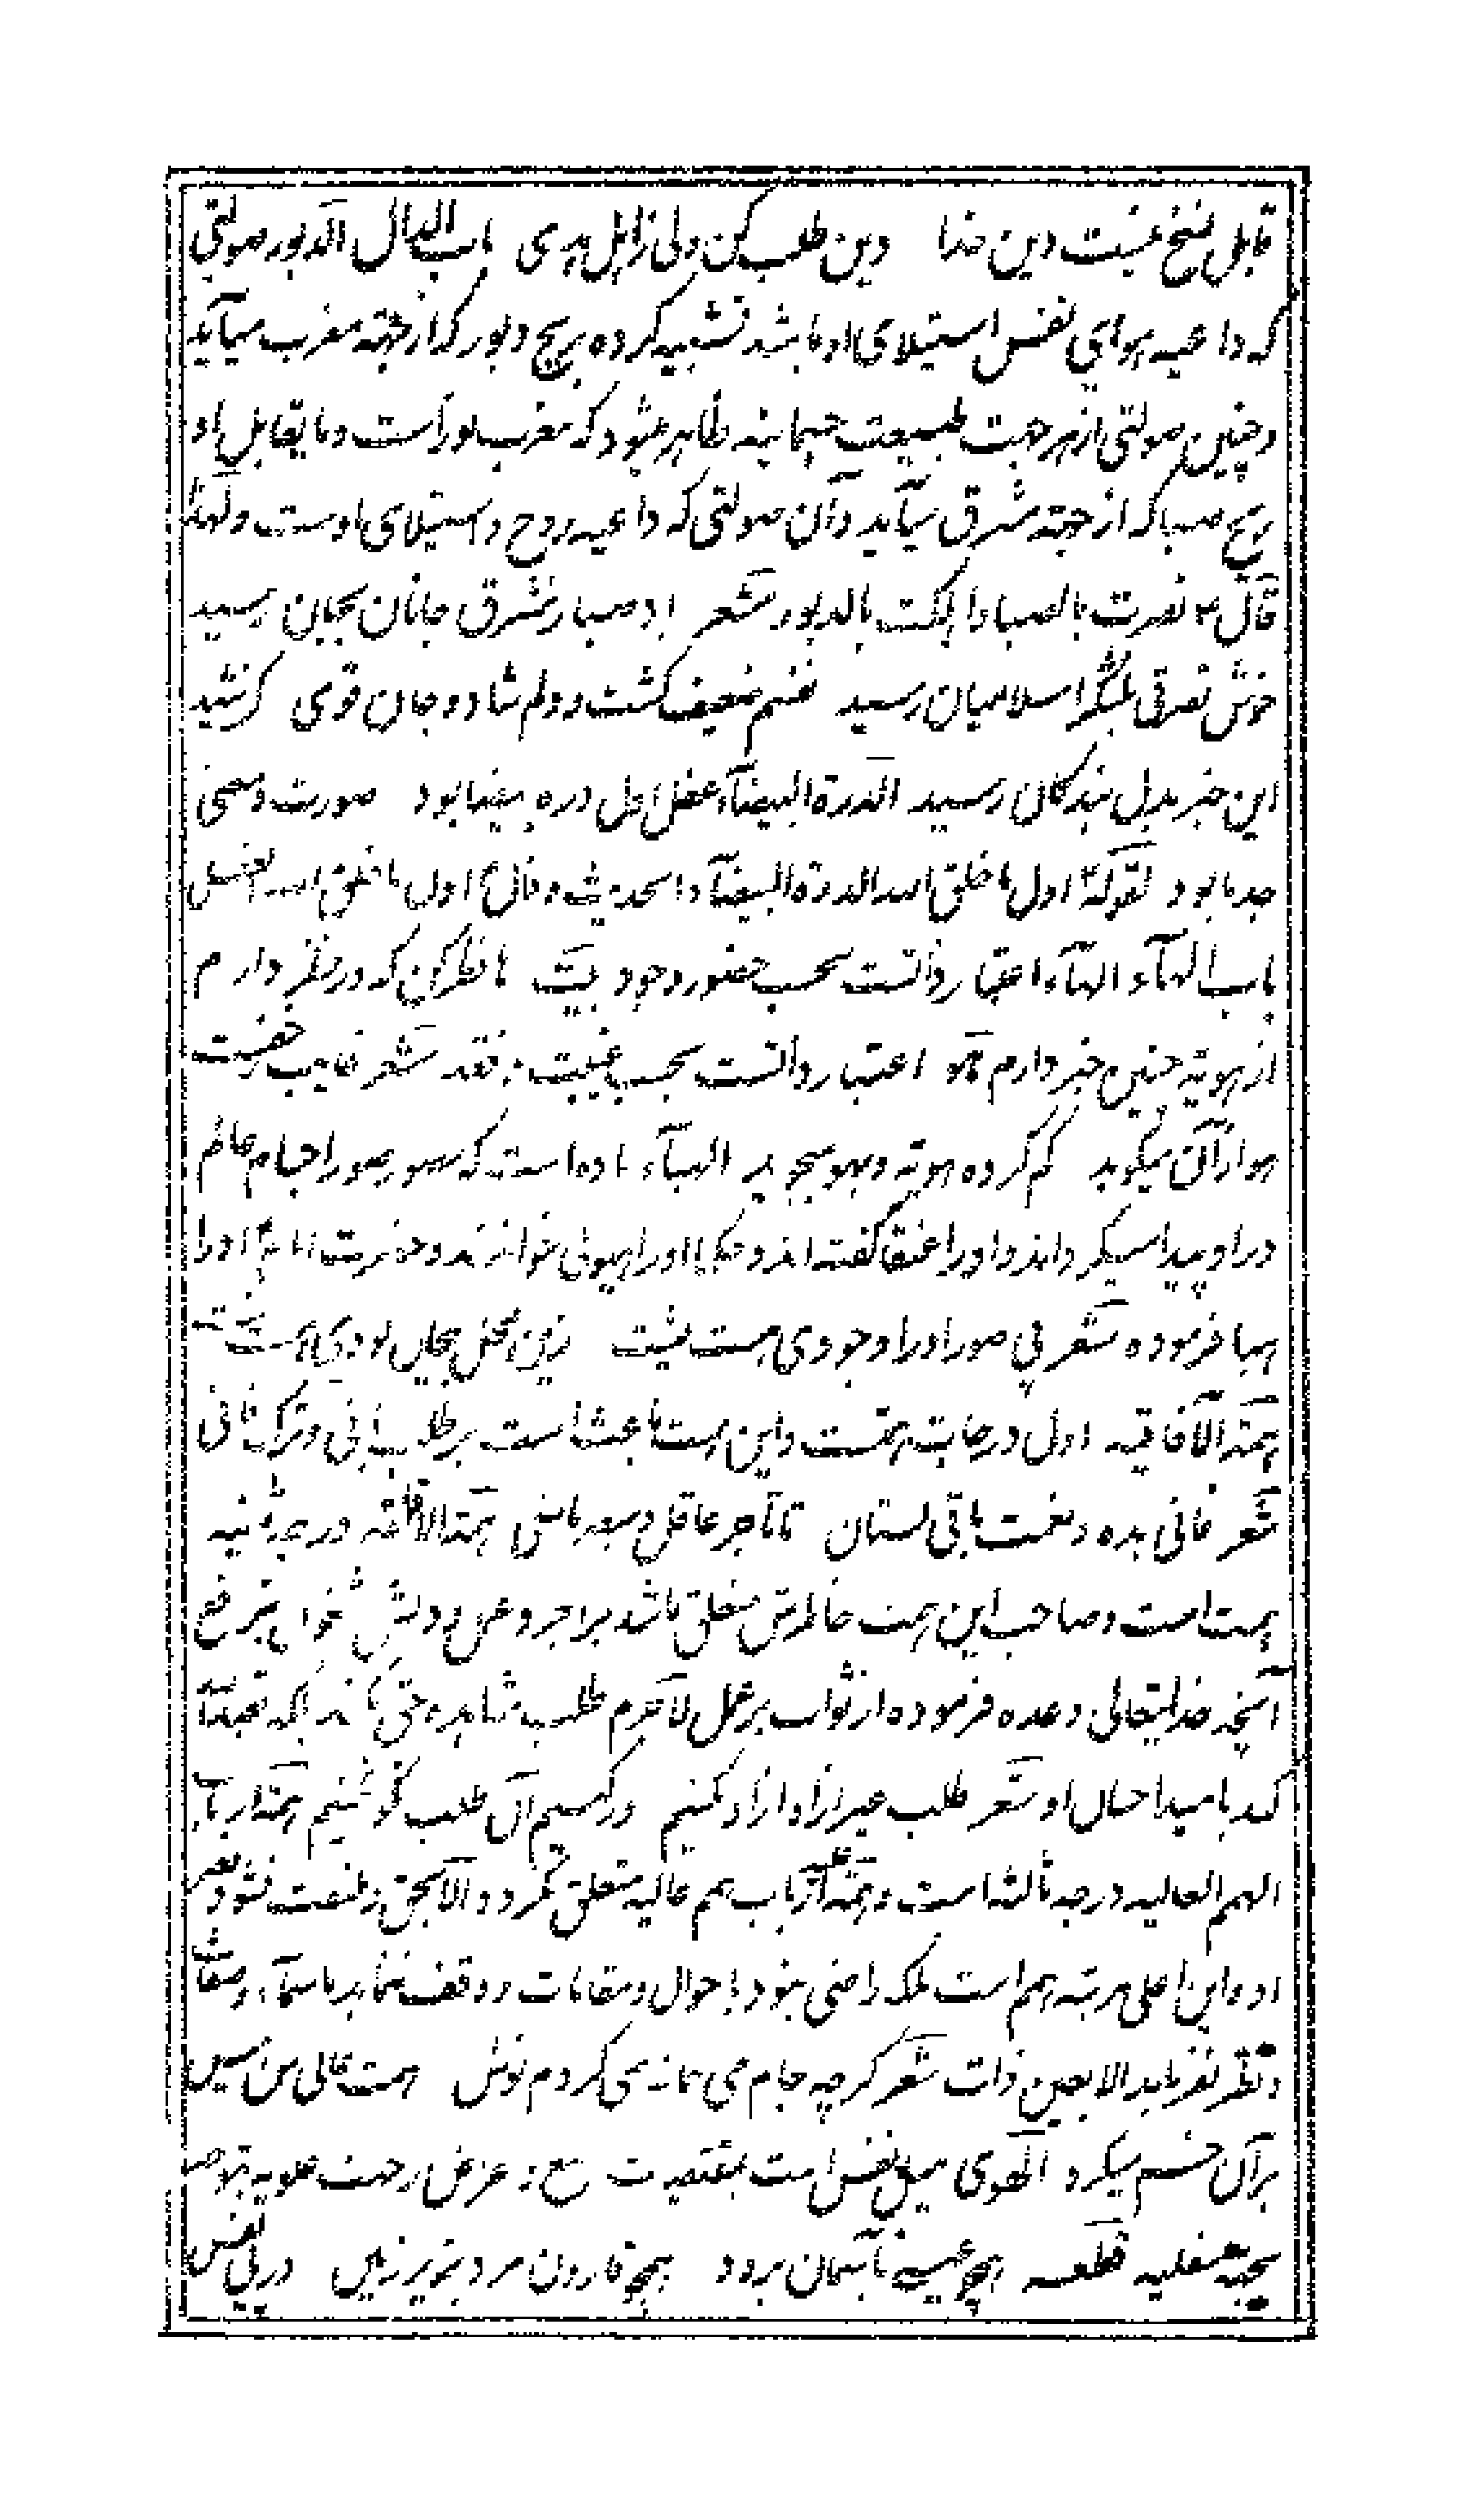 قابل نسخ نیست دین خدا دین طلب کن ولی ز اهل هدی باب الدال الدبور صولتی
که داعیه هوای نفس استیلای او باشد تشبیه کرده بریح دبور که از جهته مغرب میآید
و چنین صولتی از هر جهت طبیعت جسمانیه ظاهر میشود که مغرب نور است و ما یقابل او
ریح صبا که از جهته مشرق میآید و آن صولتی که داعیه روح و استیلای اوست ولهذا
قال نصرت بالصبا و اهلکت بالدبور شعر باد صبا ز مشرق جانان بجان رسید
خوش نصرتی بلشکر اسلامیان رسید نفسم ضعیف گشت و دلم شاد و جان قوی
این خبر بدل بندگان رسید الدرة البیضآء عقل اول دره بیضا بود صورت و معنی
جد ما بود لقوله اول ما خلق الله الدرة البیضآء الحدیث و قال اول ما خلق الله العقل
باب الهآء الهآء اعتبار ذاتست بحسب حضور و وجود بیت تا نظر کن که در نظر دارم
از هویة چنین خبر دارم هو اعتبار ذاتست بحسب غیبت و فقد شعر غایب حضرت
هو از آن میگوید گم کرده هویة و بهو میجوید الهبآء ماده است که صور اجسام عالم
در او پیدا میگرداند و او را عنقا گفته اند و حکما او را هیولی خوانند و حضرت امام او را
هبا فرموده شعر بی صور او را وجودی هست نیست
همة الآفاقیه اول درجات همتست و این همت باعث است بر طلب باقی و ترک فانی
شعر فانی بده و نعمت باقی بستان تا تاجر عاقل و سعد باشی همة الانفه درجه ثانیه
همت است و صاحب این همت خاطرش متعلق باشد بر اجر و عمل و دلش
آنچه خدایتعالی وعده فرموده از ثواب بر عمل لاجرم طلب مشاهده حق
کند بامید احسان او شعر طلب غیر از او از او نکنیم ور کنیم آن طلب نکو نکنیم همة ارباب
الهمم العالیه درجه ثالثه است و همت ارباب همم عالیه متعلق نگردد الا بحق و ملتفت نشود بغیر
او و این اعلی مرتبه همم است بلکه راضی نبود باحوال و مقامات و وقف ننماید باسمآء و صفات
و نظر نفرماید الا بعین ذات شعر گرچه جام می بنازمی کردم نوش همت عالی من میل
بر آن خم میکرد الهوی میل نفس است بمقتضیات طبع و اعراض از جهت علویه بتوجه
بجهة سفلیه قطعه همچو عیسی بآسمان بر رو همچو قارون مرو بزیر زمین در پی نفس